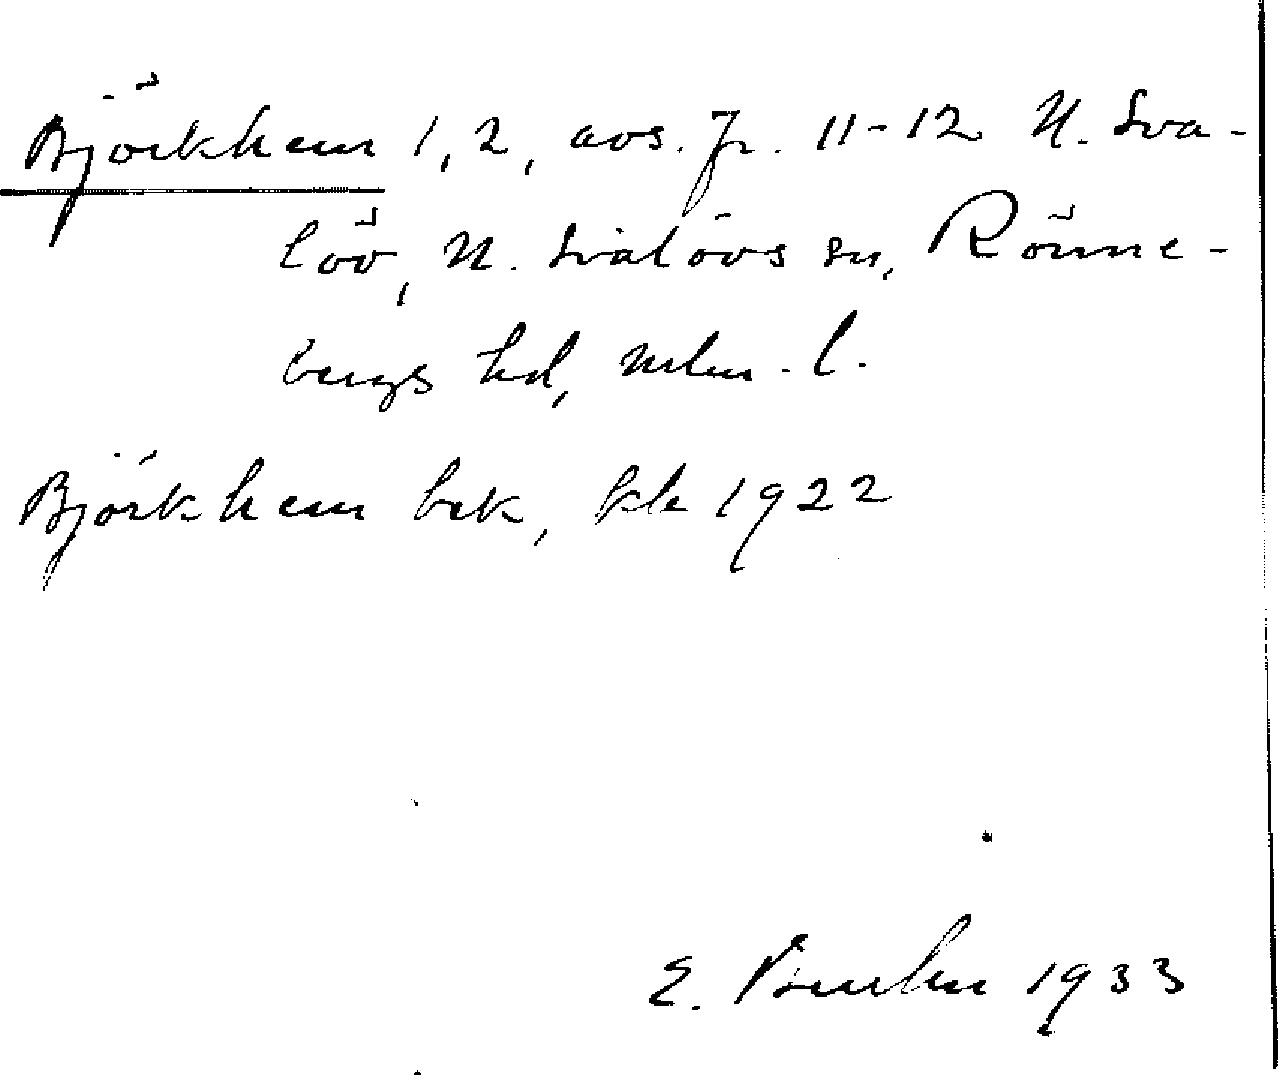 Björkhem 1, 2, avs. fr. 11-12 N. Sva-
löv, N. Svalövs sn, Rönne-
bergs hd, Mlm. l.
Björkhem bek, kk 1922
E. 1933